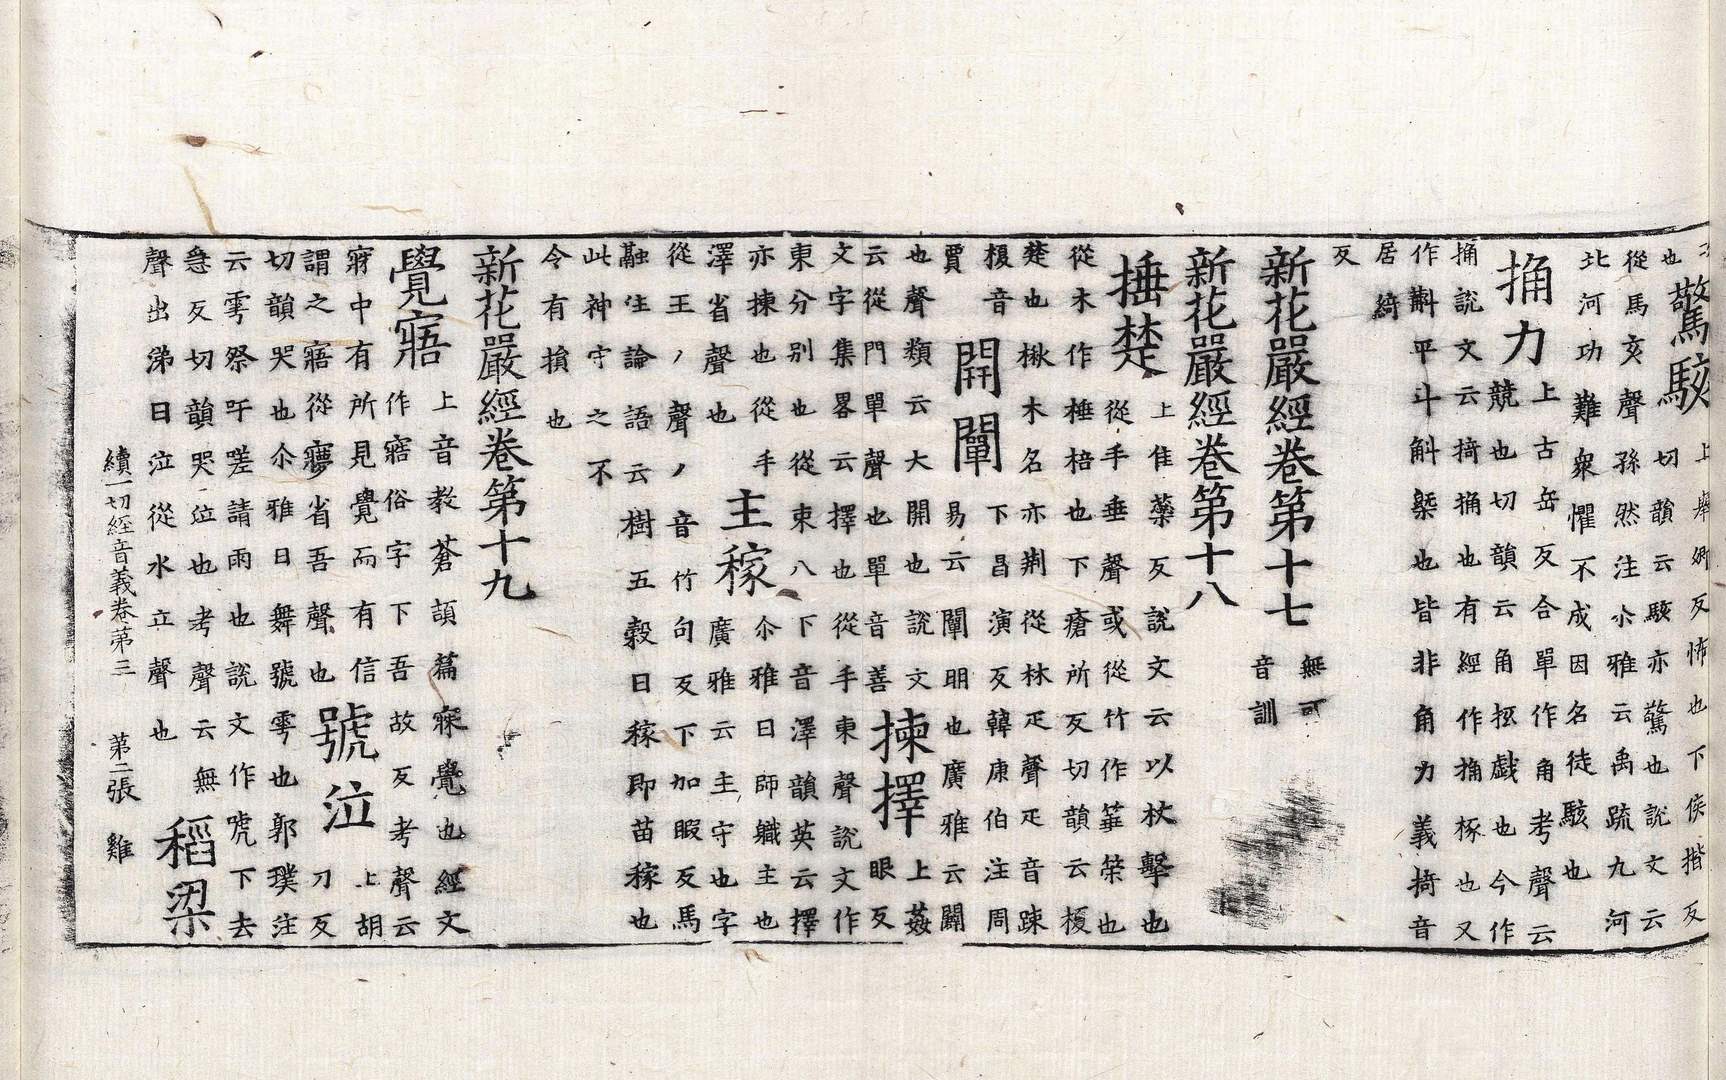 也
驚駭 上舉卿反怖也下侯揩反
切韻云駭亦驚也說文云
從馬亥聲孫然注尒雅云禹疏九河
北河功難衆懼不成因名徒駭也
捔力 上古岳反合單作角考聲云
競也切韻云角抵戲也今作
捔說文云掎捔也有經作捔㧻也又
作斠平斗斛槩也皆非角力義掎音
居綺
反
新花嚴經卷第十七 無可
音訓
新花嚴經卷第十八
捶楚 上隹蘂反說文云以杖擊也
從手垂聲或從竹作箠策也
從木作棰棓也下瘡所反切韻云榎
楚也楸木名亦荆從林疋聲疋音踈
榎音
賈
開闡 下昌演反韓康伯注周
易云闡明也廣雅云闢
也聲類云大開也說文
云從門單聲也單音善
揀擇 上姦
眼反
文字集畧云擇也從手柬聲說文作
柬分別也從柬八下音澤韻英云擇
亦揀也從手
澤省聲也
主稼 尒雅曰師職主也
廣雅云主守也字
從王丶聲丶音竹句反下加暇反馬
融注論語云樹五穀曰稼即苗稼也
此神守之不
令有損也
新花嚴經卷第十九
覺寤 上音教蒼頡篇寐覺也經文
作寤俗字下吾故反考聲云
寐中有所見覺而有信
謂之寤從㝱省吾聲也
號泣 上胡
刀反
切韻哭也尒雅曰舞號雩也郭璞注
云雩祭吁嗟請雨也說文作唬下去
急反切韻哭泣也考聲云無
聲出涕曰泣從水立聲也
稻梁
續一切經音義卷第三 第二張 雞